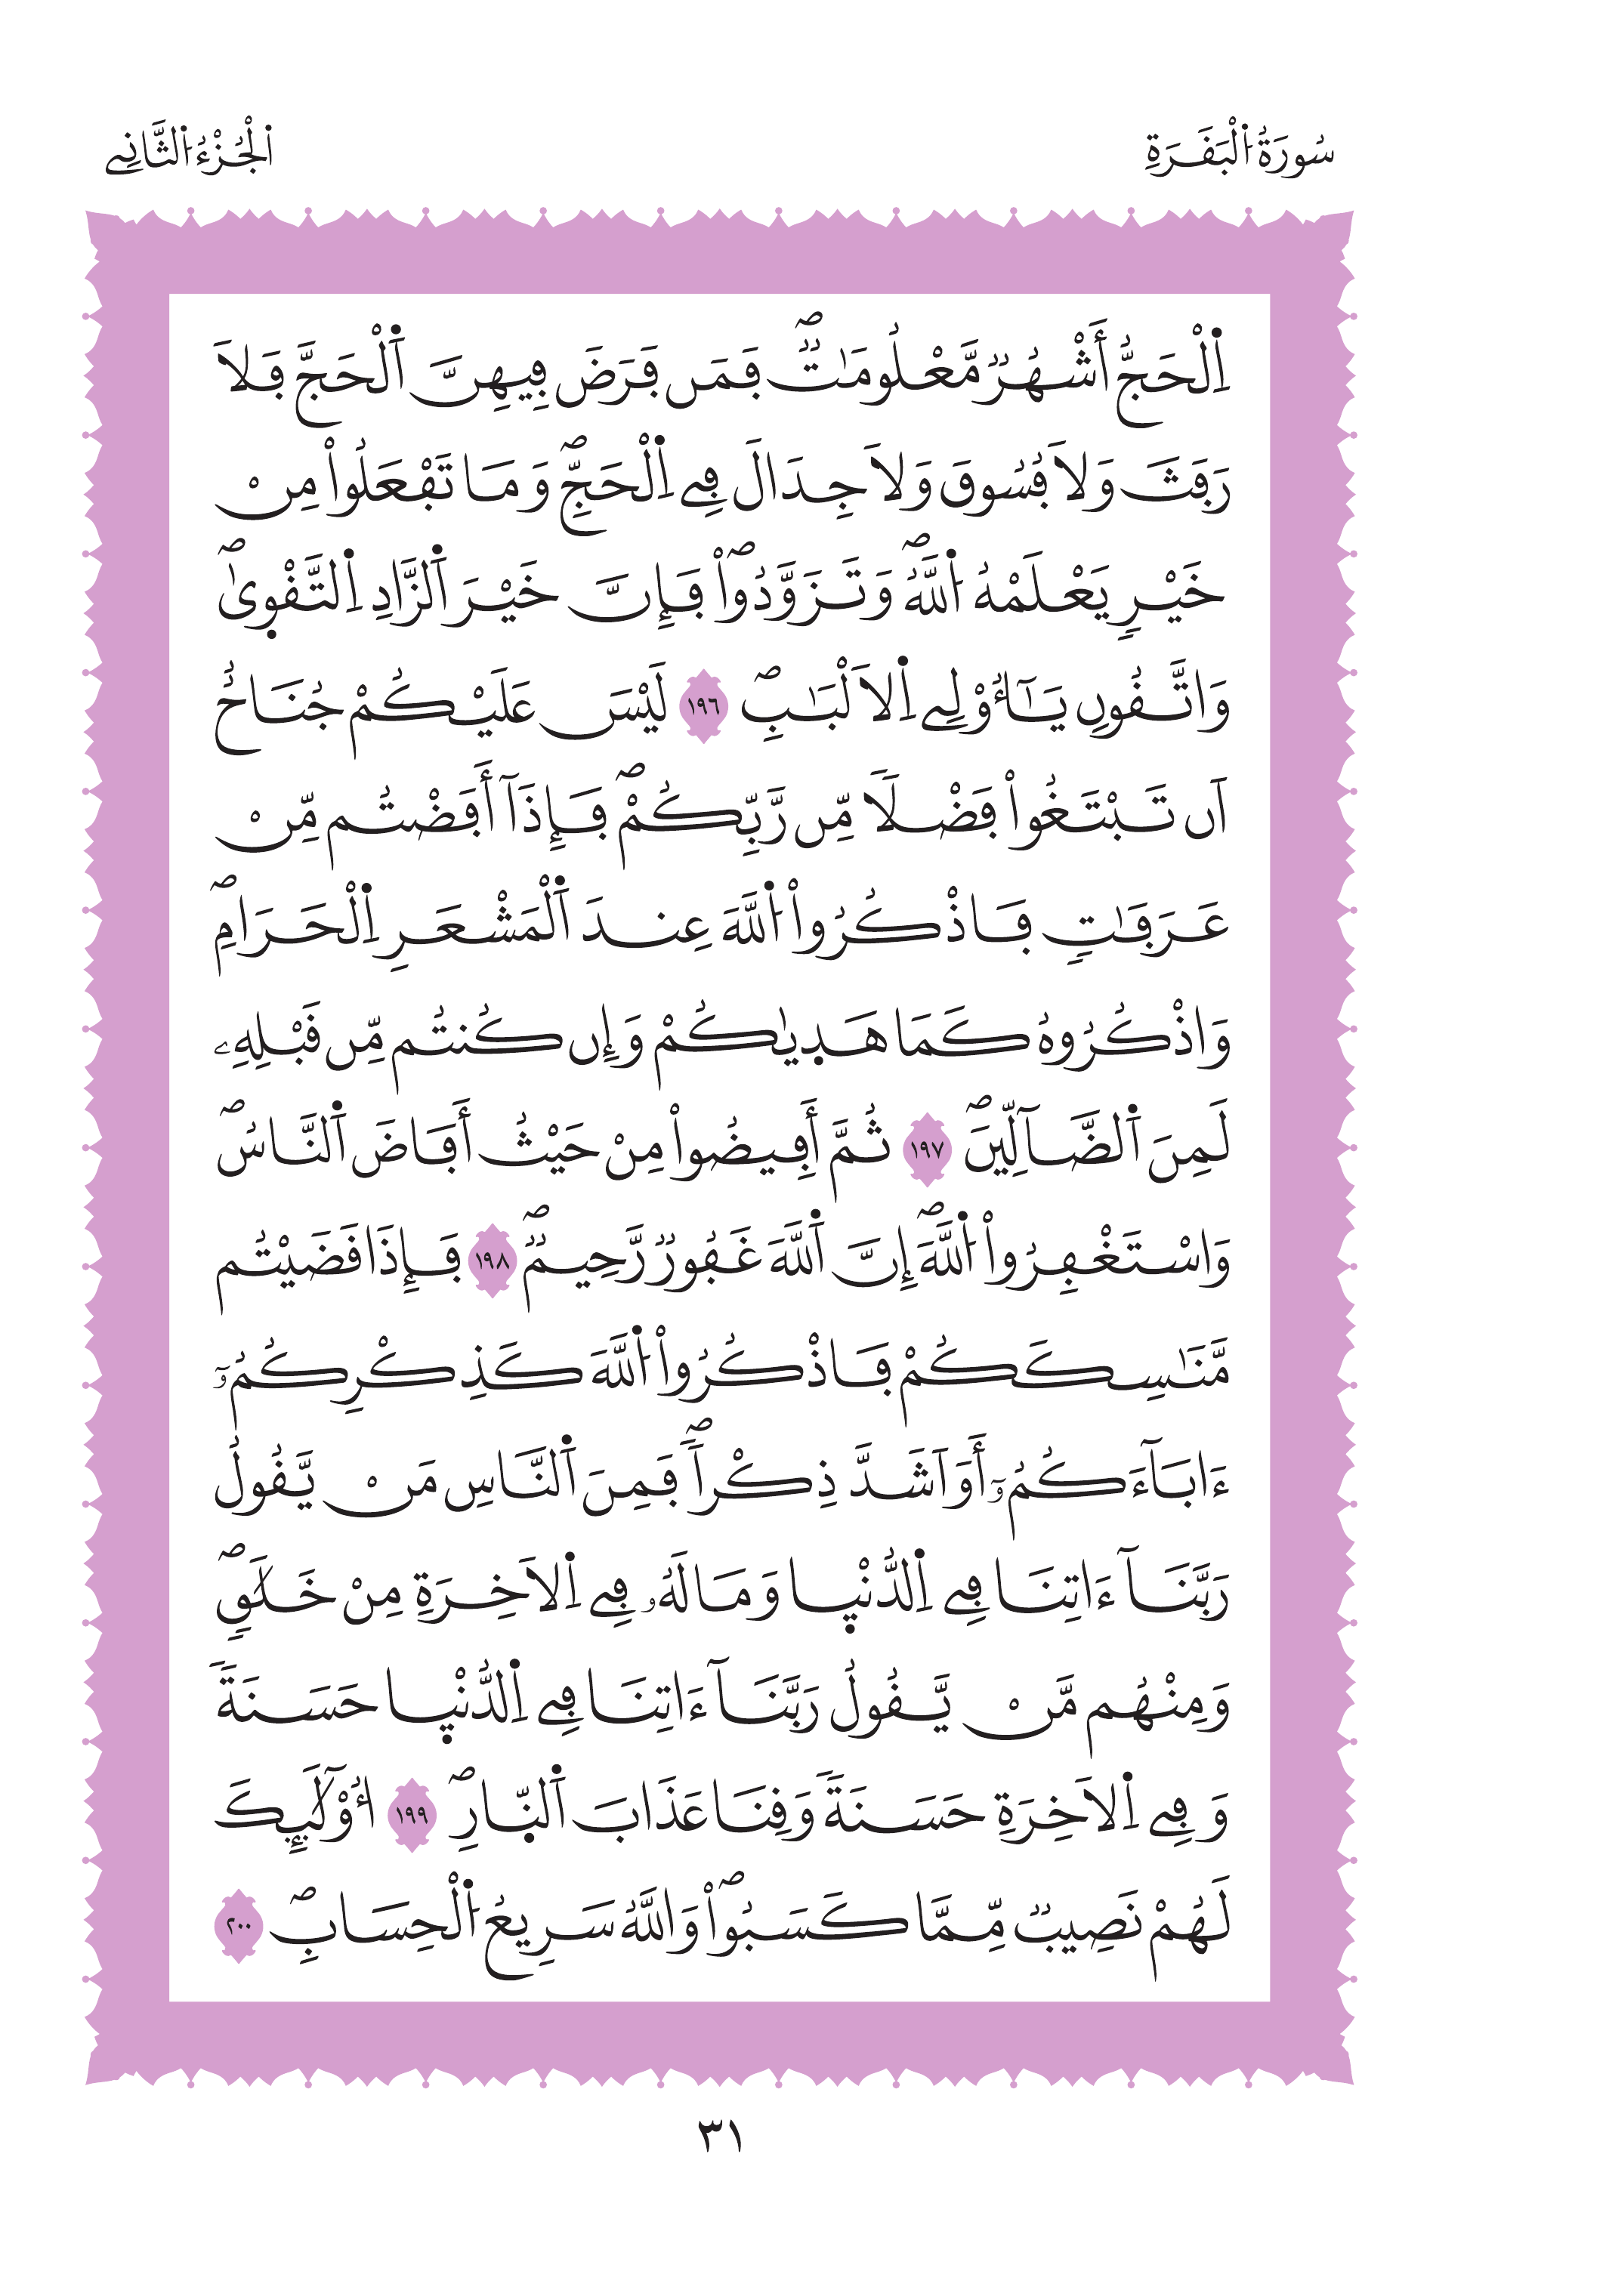 سُورَةُ اُ۬لْبَقَرَةِ
اَ۬لْجُزْءُ اُ۬لثَّانِے
اِ۬لْحَجُّ أَشْهُرٞ مَّعْلُومَٰتٞۖ فَمَن فَرَضَ فِيهِنَّ اَ۬لْحَجَّ فَلَا
رَفَثَ وَلَا فُسُوقَ وَلَا جِدَالَ فِے اِ۬لْحَجِّۖ وَمَا تَفْعَلُواْ مِنْ
خَيْرٖ يَعْلَمْهُ اُ۬للَّهُۖ وَتَزَوَّدُواْۖ فَإِنَّ خَيْرَ اَ۬لزَّادِ اِ۬لتَّقْو۪يٰۖ
وَاتَّقُونِ يَٰٓأُوْلِے اِ۬لَالْبَٰبِۖ ١٩٦ لَيْسَ عَلَيْكُمْ جُنَاحٌ
اَن تَبْتَغُواْ فَضْلاٗ مِّن رَّبِّكُمْۖ فَإِذَآ أَفَضْتُم مِّنْ
عَرَفَٰتٖ فَاذْكُرُواْ اُ۬للَّهَ عِندَ اَ۬لْمَشْعَرِ اِ۬لْحَرَامِۖ
وَاذْكُرُوهُ كَمَا هَد۪يٰكُمْ وَإِن كُنتُم مِّن قَبْلِهِۦ
لَمِنَ اَ۬لضَّآلِّينَۖ ١٩٧ ثُمَّ أَفِيضُواْ مِنْ حَيْثُ أَفَاضَ اَ۬لنَّاسُۖ
وَاسْتَغْفِرُواْ اُ۬للَّهَۖ إِنَّ اَ۬للَّهَ غَفُورٞ رَّحِيمٞۖ ١٩٨ فَإِذَا قَضَيْتُم
مَّنَٰسِكَكُمْ فَاذْكُرُواْ اُ۬للَّهَ كَذِكْرِكُمُۥٓ
ءَابَآءَكُمُۥٓ أَوَ اَشَدَّ ذِكْراٗۖ فَمِنَ اَ۬لنَّاسِ مَنْ يَّقُولُ
رَبَّنَآ ءَاتِنَا فِے اِ۬لدُّنْي۪ا وَمَا لَهُۥ فِے اِ۬لَاخِرَةِ مِنْ خَلَٰقٖۖ
وَمِنْهُم مَّنْ يَّقُولُ رَبَّنَآ ءَاتِنَا فِے اِ۬لدُّنْي۪ا حَسَنَةٗ
وَفِے اِ۬لَاخِرَةِ حَسَنَةٗ وَقِنَا عَذَابَ اَ۬لنّ۪ارِۖ ١٩٩ أُوْلَٰٓئِكَ
لَهُمْ نَصِيبٞ مِّمَّا كَسَبُواْۖ وَاللَّهُ سَرِيعُ اُ۬لْحِسَابِۖ ٢٠٠
٣١